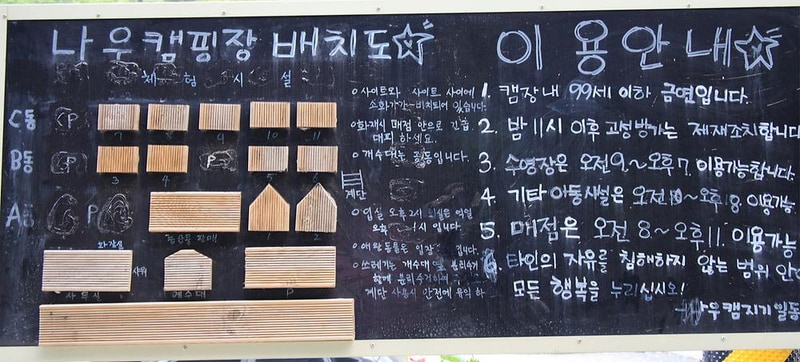 나우캠핑장 배치도
체험시설
C동
7
8
9
10
11
B동
3
4
P
5
6
계단
A동
P
1
2
화장실
샤워
사무실
개수대
P
○ 사이트와 사이트 사이에
소화기가 비치되어 있습니다.
○ 화재시 매점 앞으로 긴급
대피 하세요.
○ 개수대는 입니다.
○ 입실 오후 2시 퇴실은 익일
입니다.
○ 애완동물은 입장
○ 쓰레기는 개수대 옆 분리수거
계단 사용시 안전에 유의 하
이용안내
1. 캠장내 99세 이하 금연입니다.
2. 밤 11시 이후 고성방가는 제재조치합니다
3. 수영장은 오전 9.~오후 7. 이용가능합니다.
4. 기타 이동시설은 오전 ~오후 8. 이용가능.
5. 매점은 오전 8~오후 11. 이용가능
6. 타인의 자유를 침해하지 않는 범위 안
모든 행복을 누리십시오!
나우캠지기 일동